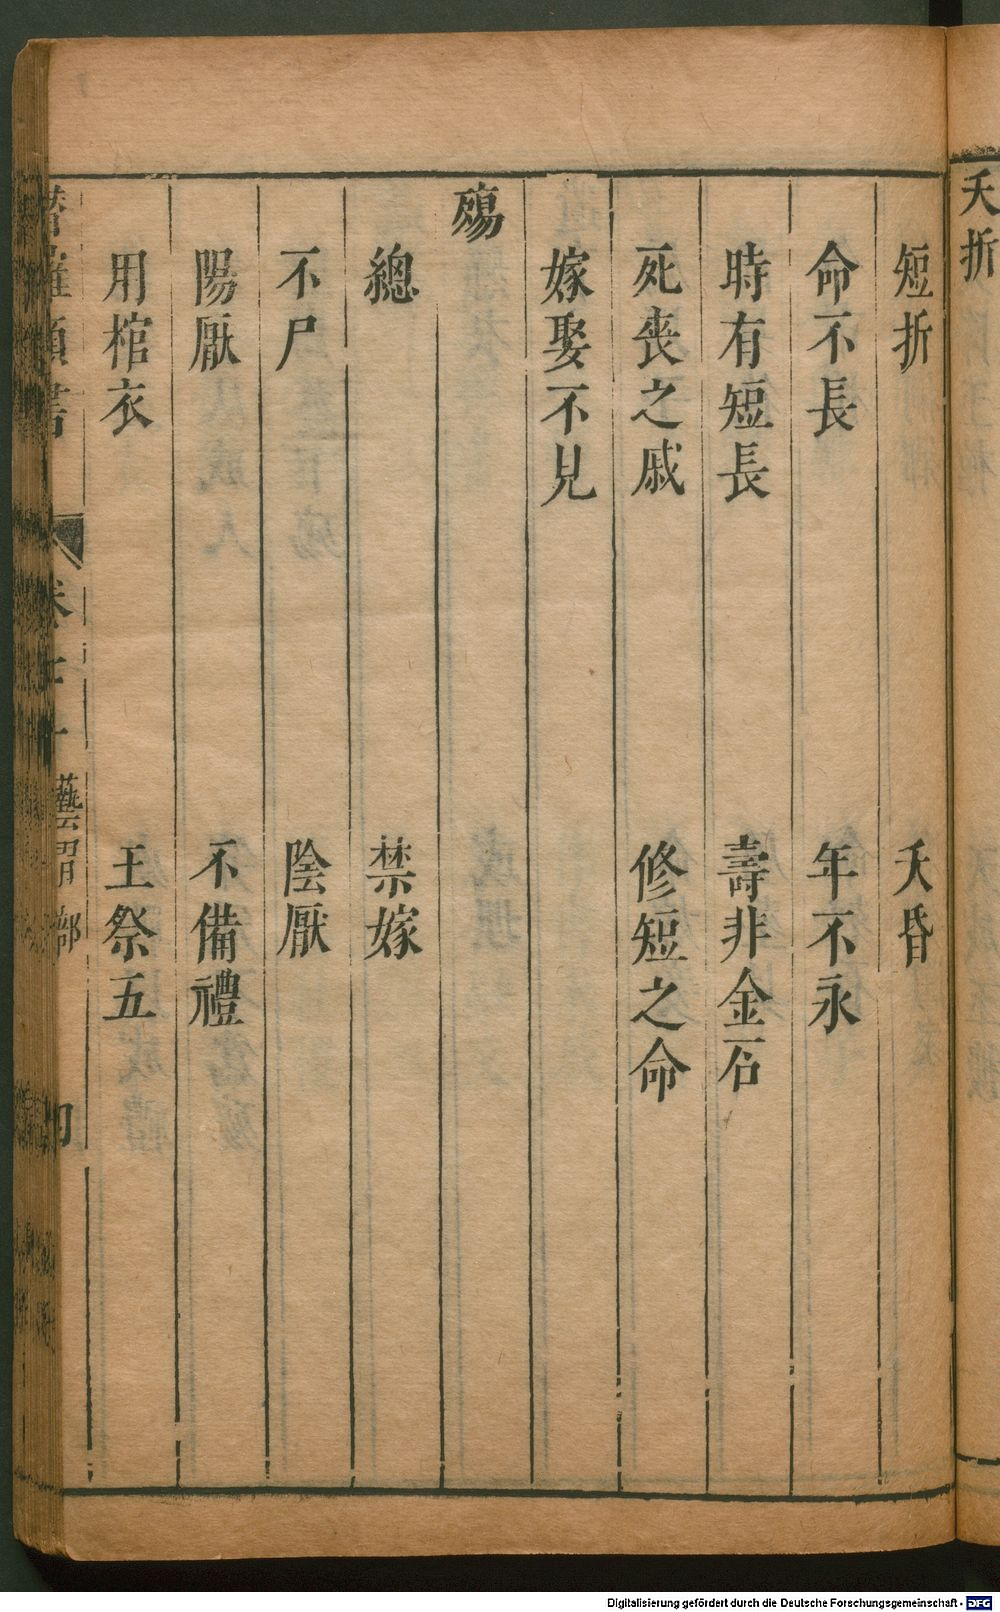 夭折
短折　夭昏
命不長　年不永
時有短長　壽非金石
死喪之戚　修短之命
嫁娶不見
殤
總　禁嫁
不尸　陰厭
陽厭　不備禮
用棺衣　王祭五
類書　卷七十　藝習部
Digitalisierung gefördert durch die Deutsche Forschungsgemeinschaft - DFG